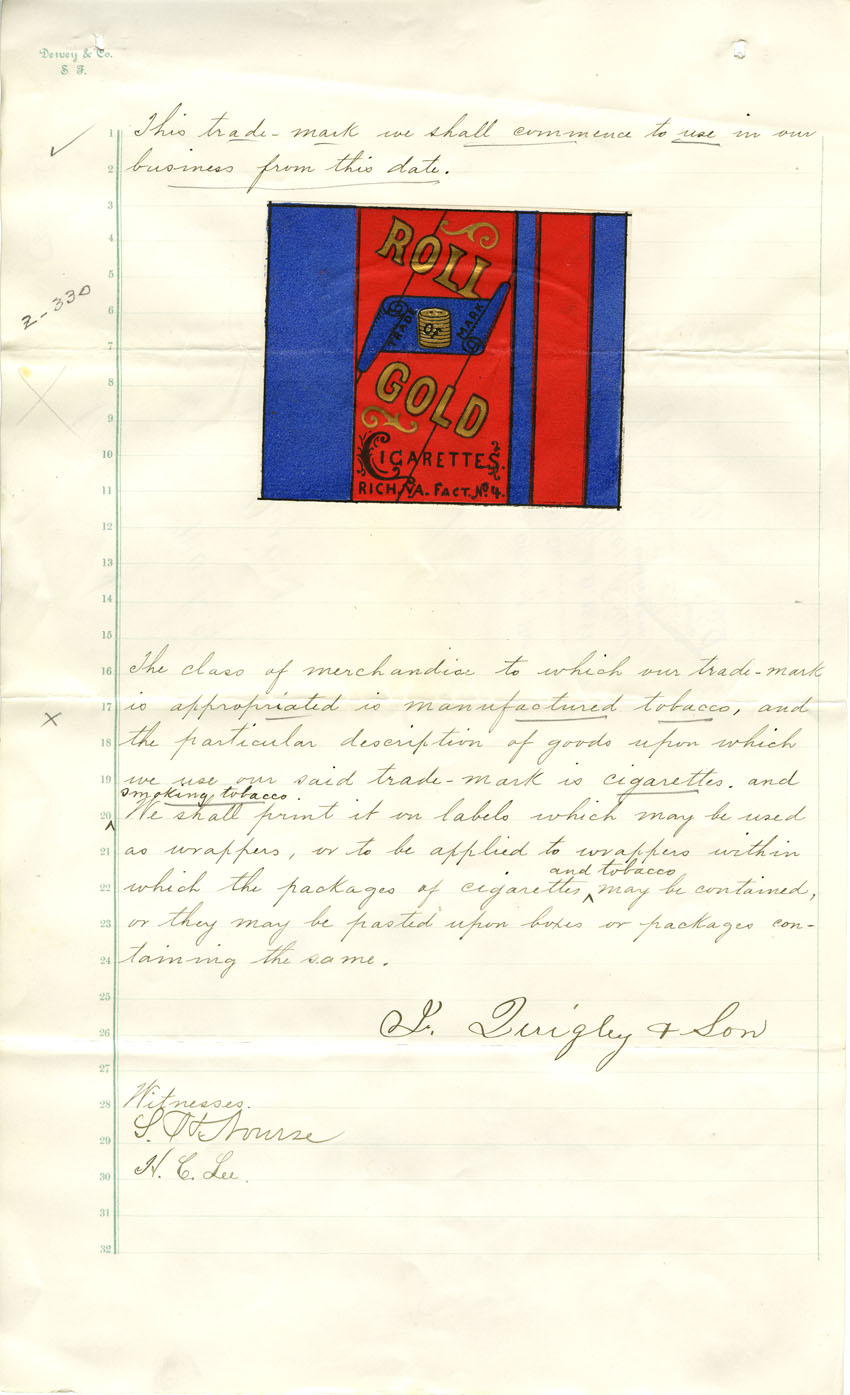 Dewey & Co.
S. F.
1 This trade-mark we shall commence to use in our
2 business from this date.
3
4
2-330
5
6
7
8
9
10
11
12
13
14
15
ROLL
TRADE OF MARK
GOLD
CIGARETTES.
RICH, VA. FACT. No. 4.
16 The class of merchandise to which our trade-mark
17 is appropriated is manufactured tobacco, and
18 the particular description of goods upon which
19 we use our said trade-mark is cigarettes. and
smoking tobacco.
20 We shall print it on labels which may be used
21 as wrappers, or to be applied to wrappers within
and tobacco
22 which the packages of cigarettes ^ may be contained,
23 or they may be pasted upon boxes or packages con-
24 taining the same.
25
26 Quigley & Son
27
28 Witnesses.
29 Nourse
30 H. C. Lee.
31
32